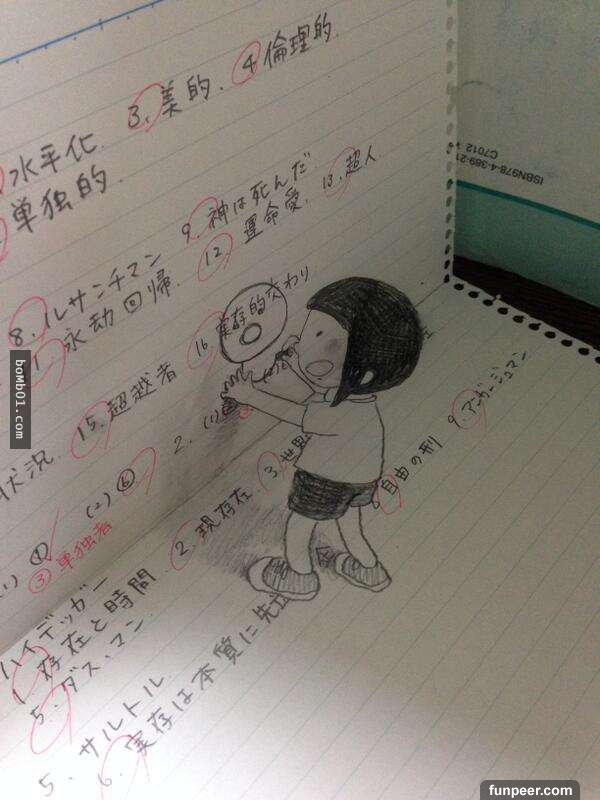 3. 美的. ④ 倫理的.
水平化
単独的
9. 神は死んだ
8. ルサンチマン 12 運命愛. 13. 超人
1. 永劫回帰
16. 実存的交わり
15. 超越者
状況.
2. (1)
(2) ⑥
(1) ④
③ 単独者
2. 現存在 3. 世界
自由の刑 9. アンガージュマン
ハイデッガー
1. 存在と時間
5. ダス・マン
5. サルトル
6. 実存は本質に先立
ISBN978-4-389-21
C7012
bomb01.com
funpeer.com